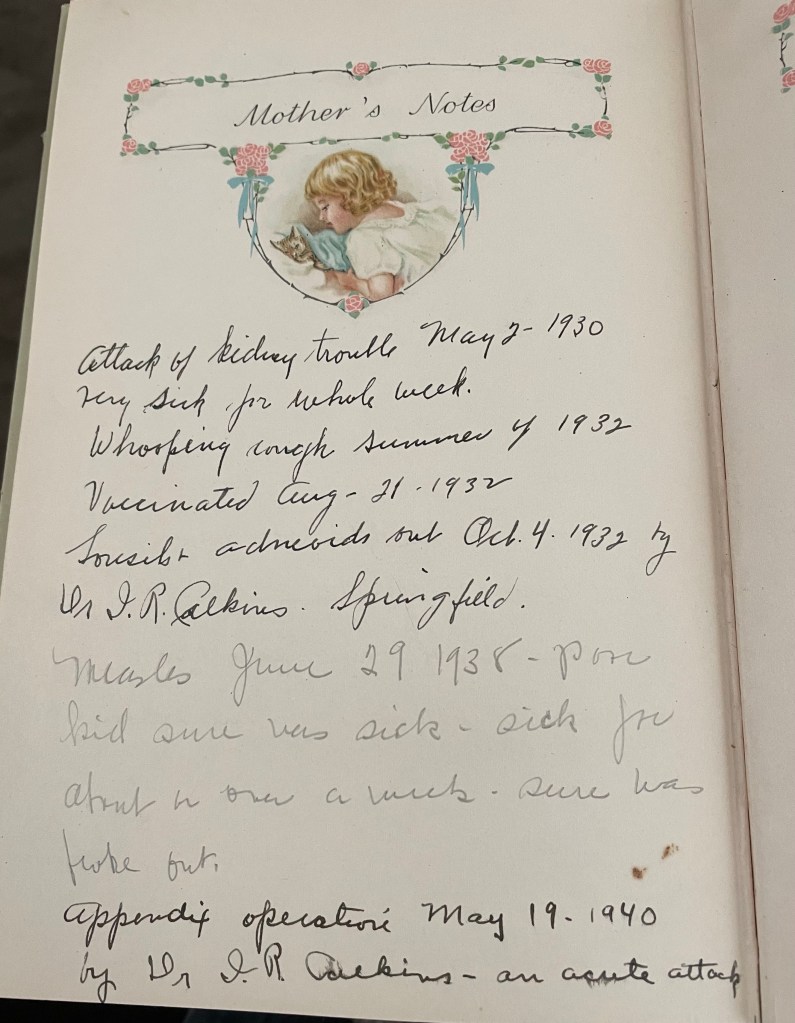 Mother's Notes
Attack of kidney trouble May 2 - 1930
very sick for whole week.
Whooping cough summer of 1932
Vaccinated Aug - 21 - 1932
Tonsils + adnevids out Oct. 4. 1932 by
Dr I. R. Calkins. Springfield.
Measles June 29 1938 - poor
kid sure was sick - sick for
about or over a week - sure was
broke out.
Appendix operation May 19 - 1940
by Dr I. R. Calkins - an acute attack